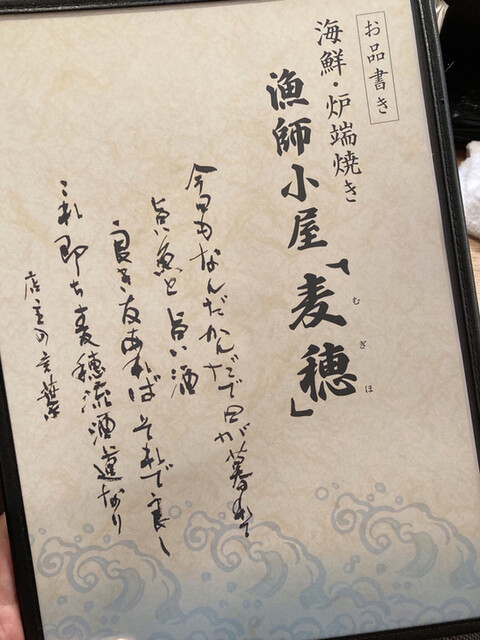 お品書き
海鮮・炉端焼き
漁師小屋「麦穂」
むぎほ
今日もなんだかんだで日が暮れて
旨い魚と旨い酒
良き友あればそれで良し
これ即ち麦穂流酒道なり
店主の言葉